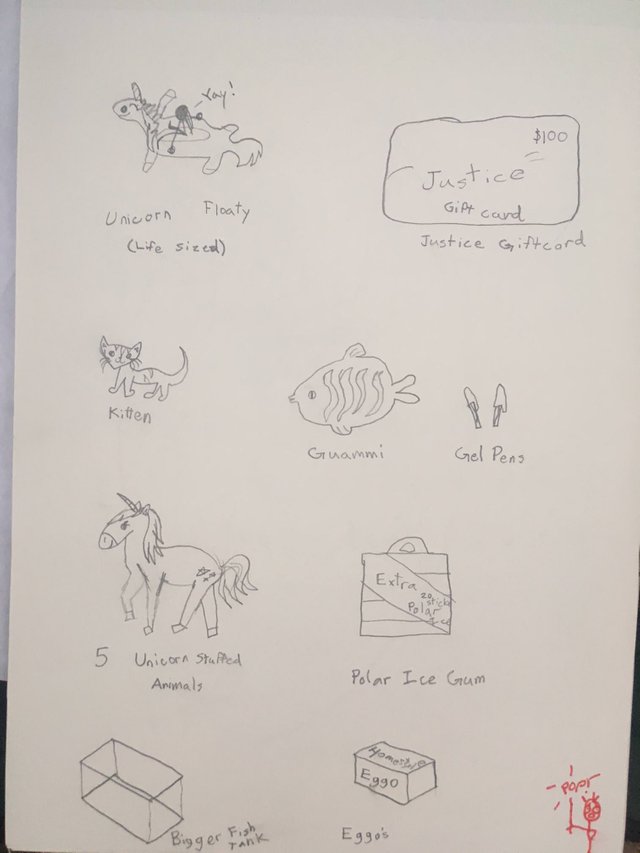 Yay!
Unicorn Floaty
(Life sized)
$100
Justice
Gift card
Justice Giftcard
Kitten
Guammi
Gel Pens
5 Unicorn Stuffed
Animals
Extra
20 sticks
Polar
Ice
Polar Ice Gum
Bigger Fish
Tank
Homestyle
Eggo
Eggo's